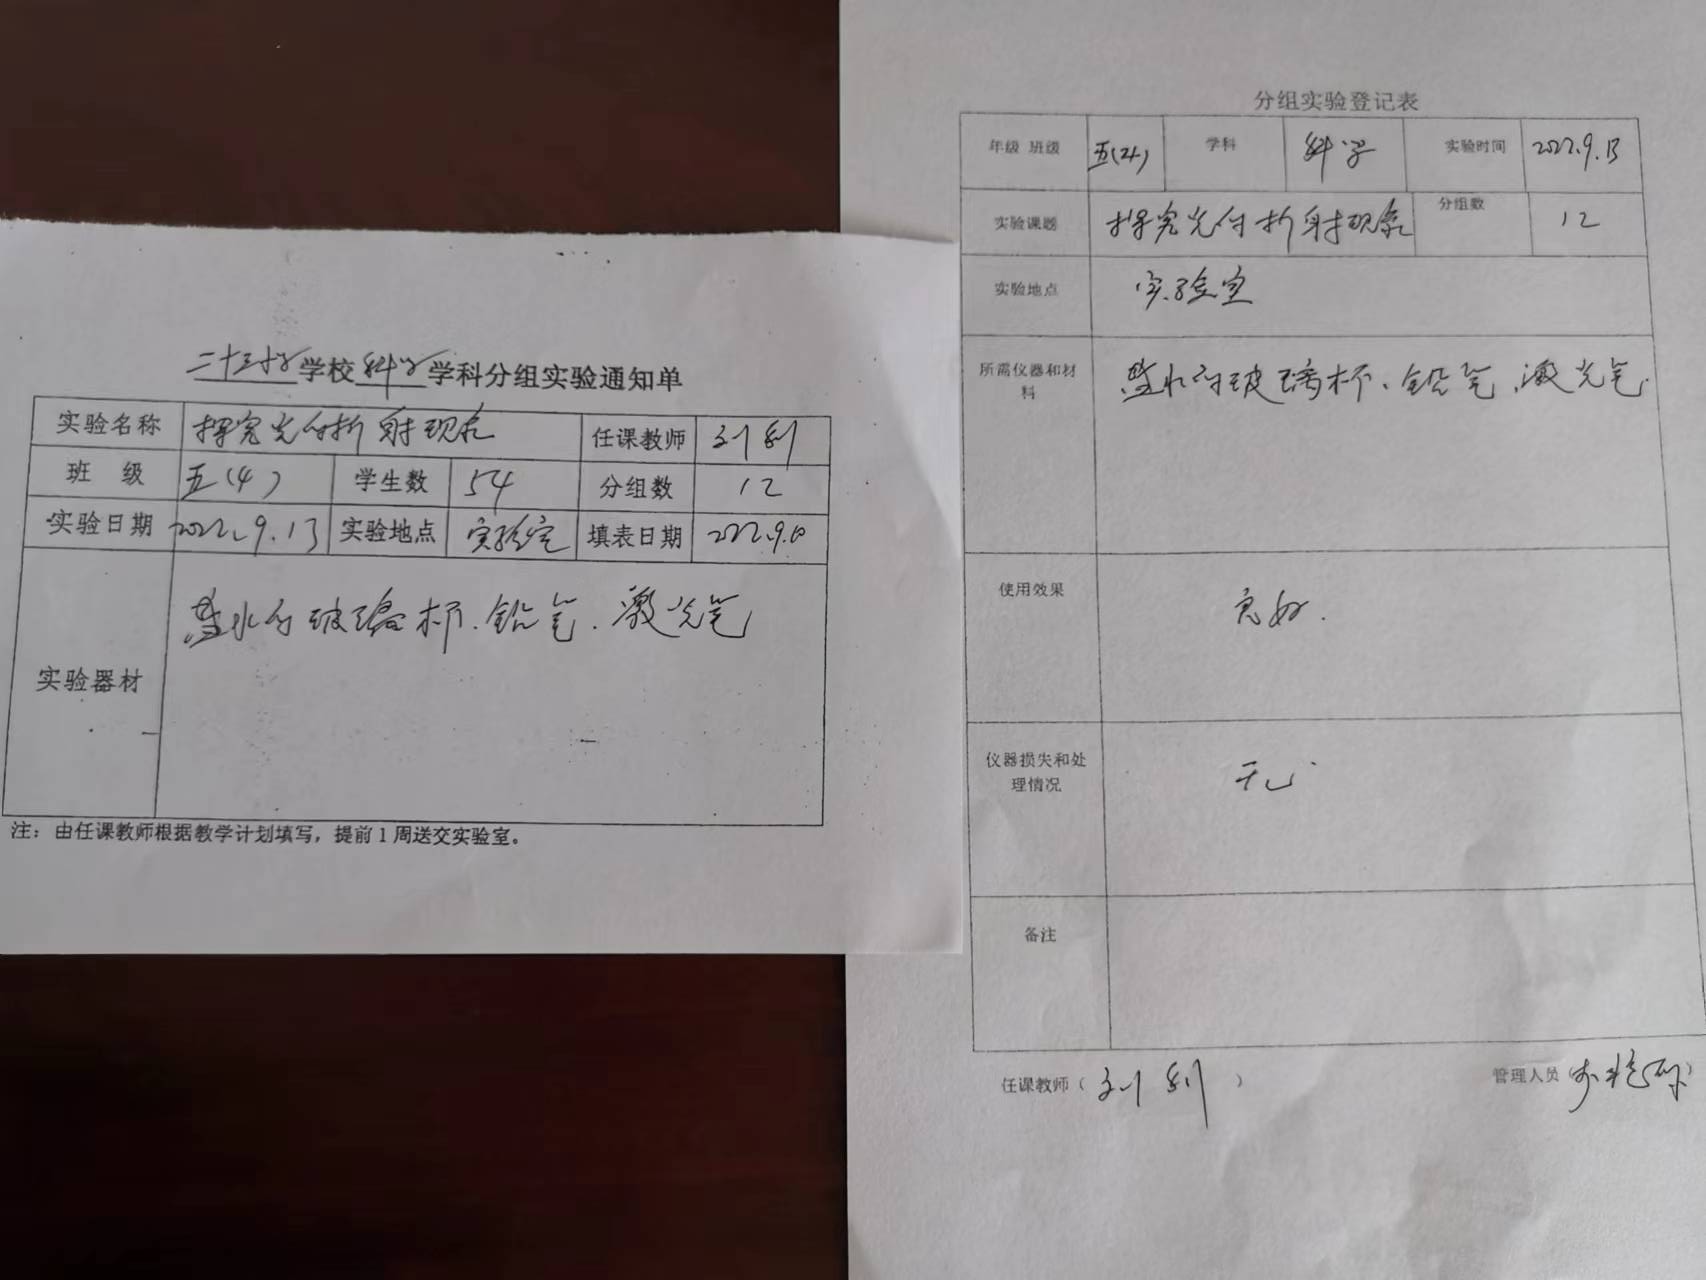 学校科学学科分组实验通知单
实验名称 探究光的折射现象 任课教师 刘
班 级 五(4) 学生数 54 分组数 12
实验日期 2022.9.13 实验地点 实验室 填表日期 2022.9.
实验器材 盛水的玻璃杯、铅笔、激光笔
注：由任课教师根据教学计划填写，提前1周送交实验室。
分组实验登记表
年级 班级 五(4) 学科 科学 实验时间 2022.9.13
实验课题 探究光的折射现象 分组数 12
实验地点 实验室
所需仪器和材料 盛水的玻璃杯、铅笔、激光笔
使用效果 良好.
仪器损失和处理情况 无
备注
任课教师（刘 ） 管理人员（ ）